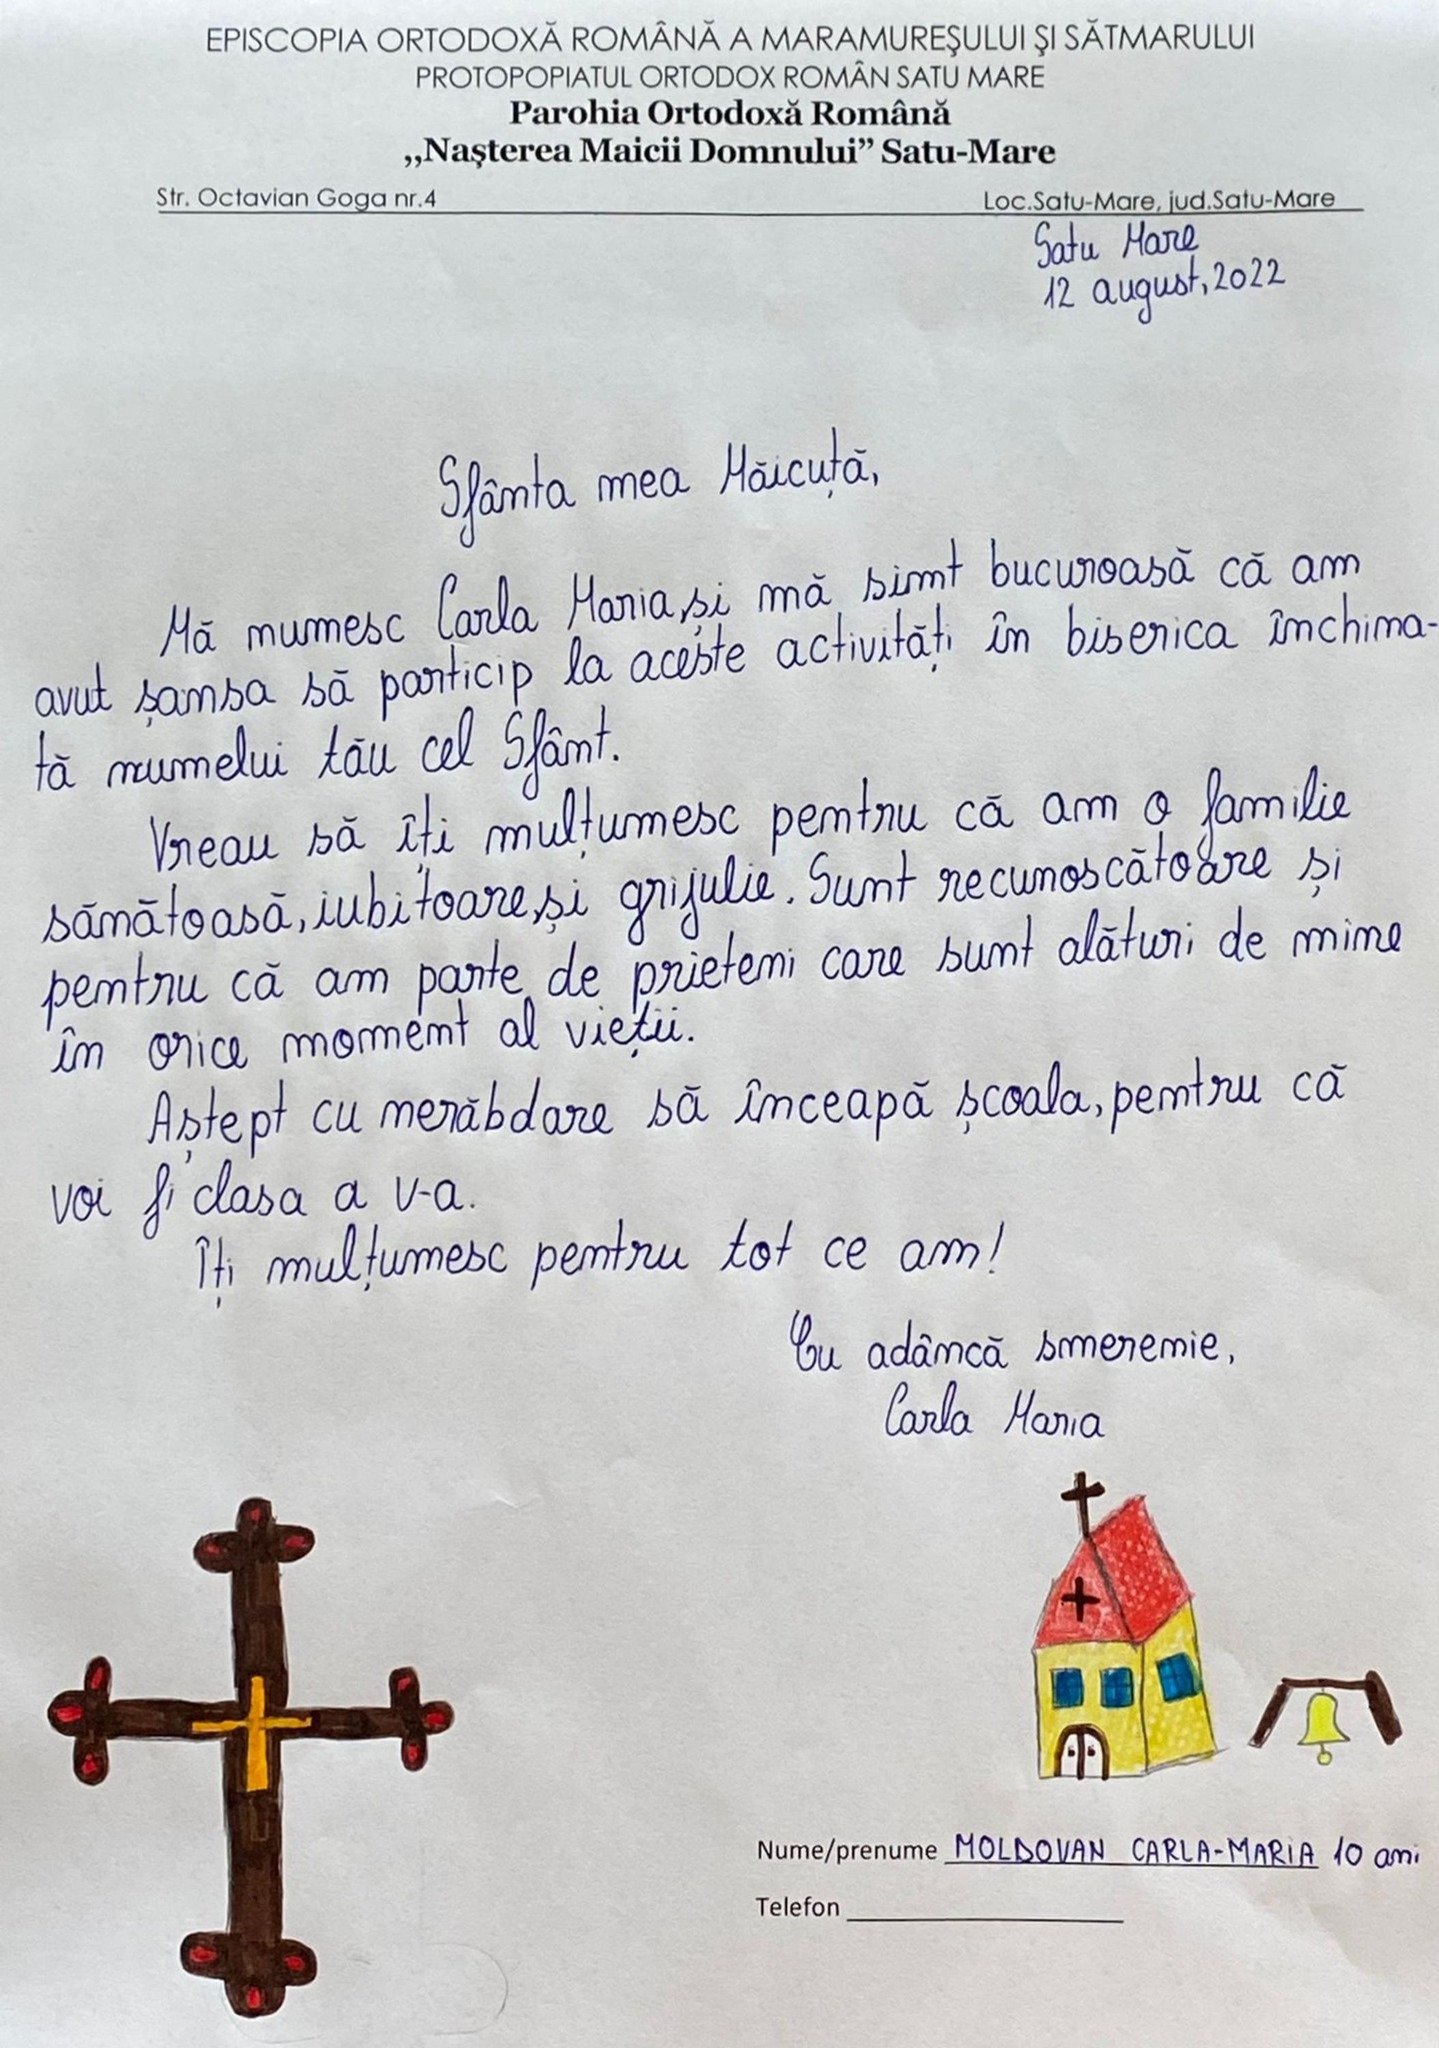 EPISCOPIA ORTODOXĂ ROMÂNĂ A MARAMUREŞULUI ŞI SĂTMARULUI
PROTOPOPIATUL ORTODOX ROMÂN SATU MARE
Parohia Ortodoxă Română
,,Naşterea Maicii Domnului” Satu-Mare
Str. Octavian Goga nr.4 Loc.Satu-Mare, jud.Satu-Mare
Satu Mare
12 august, 2022
Sfânta mea Măicuță,
Mă numesc Carla Maria, și mă simt bucuroasă că am
avut șansa să particip la aceste activități în biserica închina-
tă numelui tău cel Sfânt.
Vreau să îți mulțumesc pentru că am o familie
sănătoasă, iubitoare, și grijulie. Sunt recunoscătoare și
pentru că am parte de prieteni care sunt alături de mine
în orice moment al vieții.
Aștept cu nerăbdare să înceapă școala, pentru că
voi fi clasa a V-a.
Îți mulțumesc pentru tot ce am!
Cu adâncă smerenie,
Carla Maria
Nume/prenume MOLDOVAN CARLA-MARIA 10 ani
Telefon